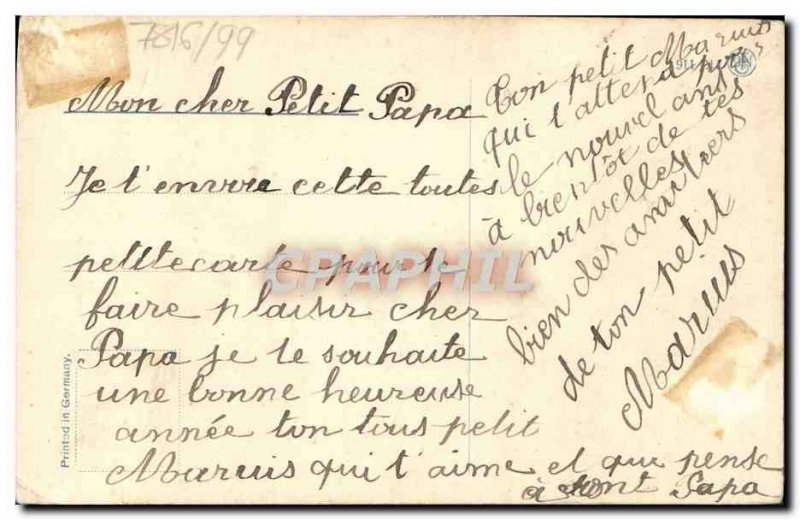 7816/99
Mon cher Petit Papa
Je t'envoie cette toutes
petite carte pour te
faire plaisir cher
Papa je te souhaite
une bonne heureuse
année ton tous petit
Maruis qui t'aime et que pense
à tont Papa
Ton petit Maruis
qui t'attend pour
le nouvel an
à bientôt de tes
nouvelles
bien des amitiers
de ton petit
Maruis
Printed in Germany.
CPAPHIL